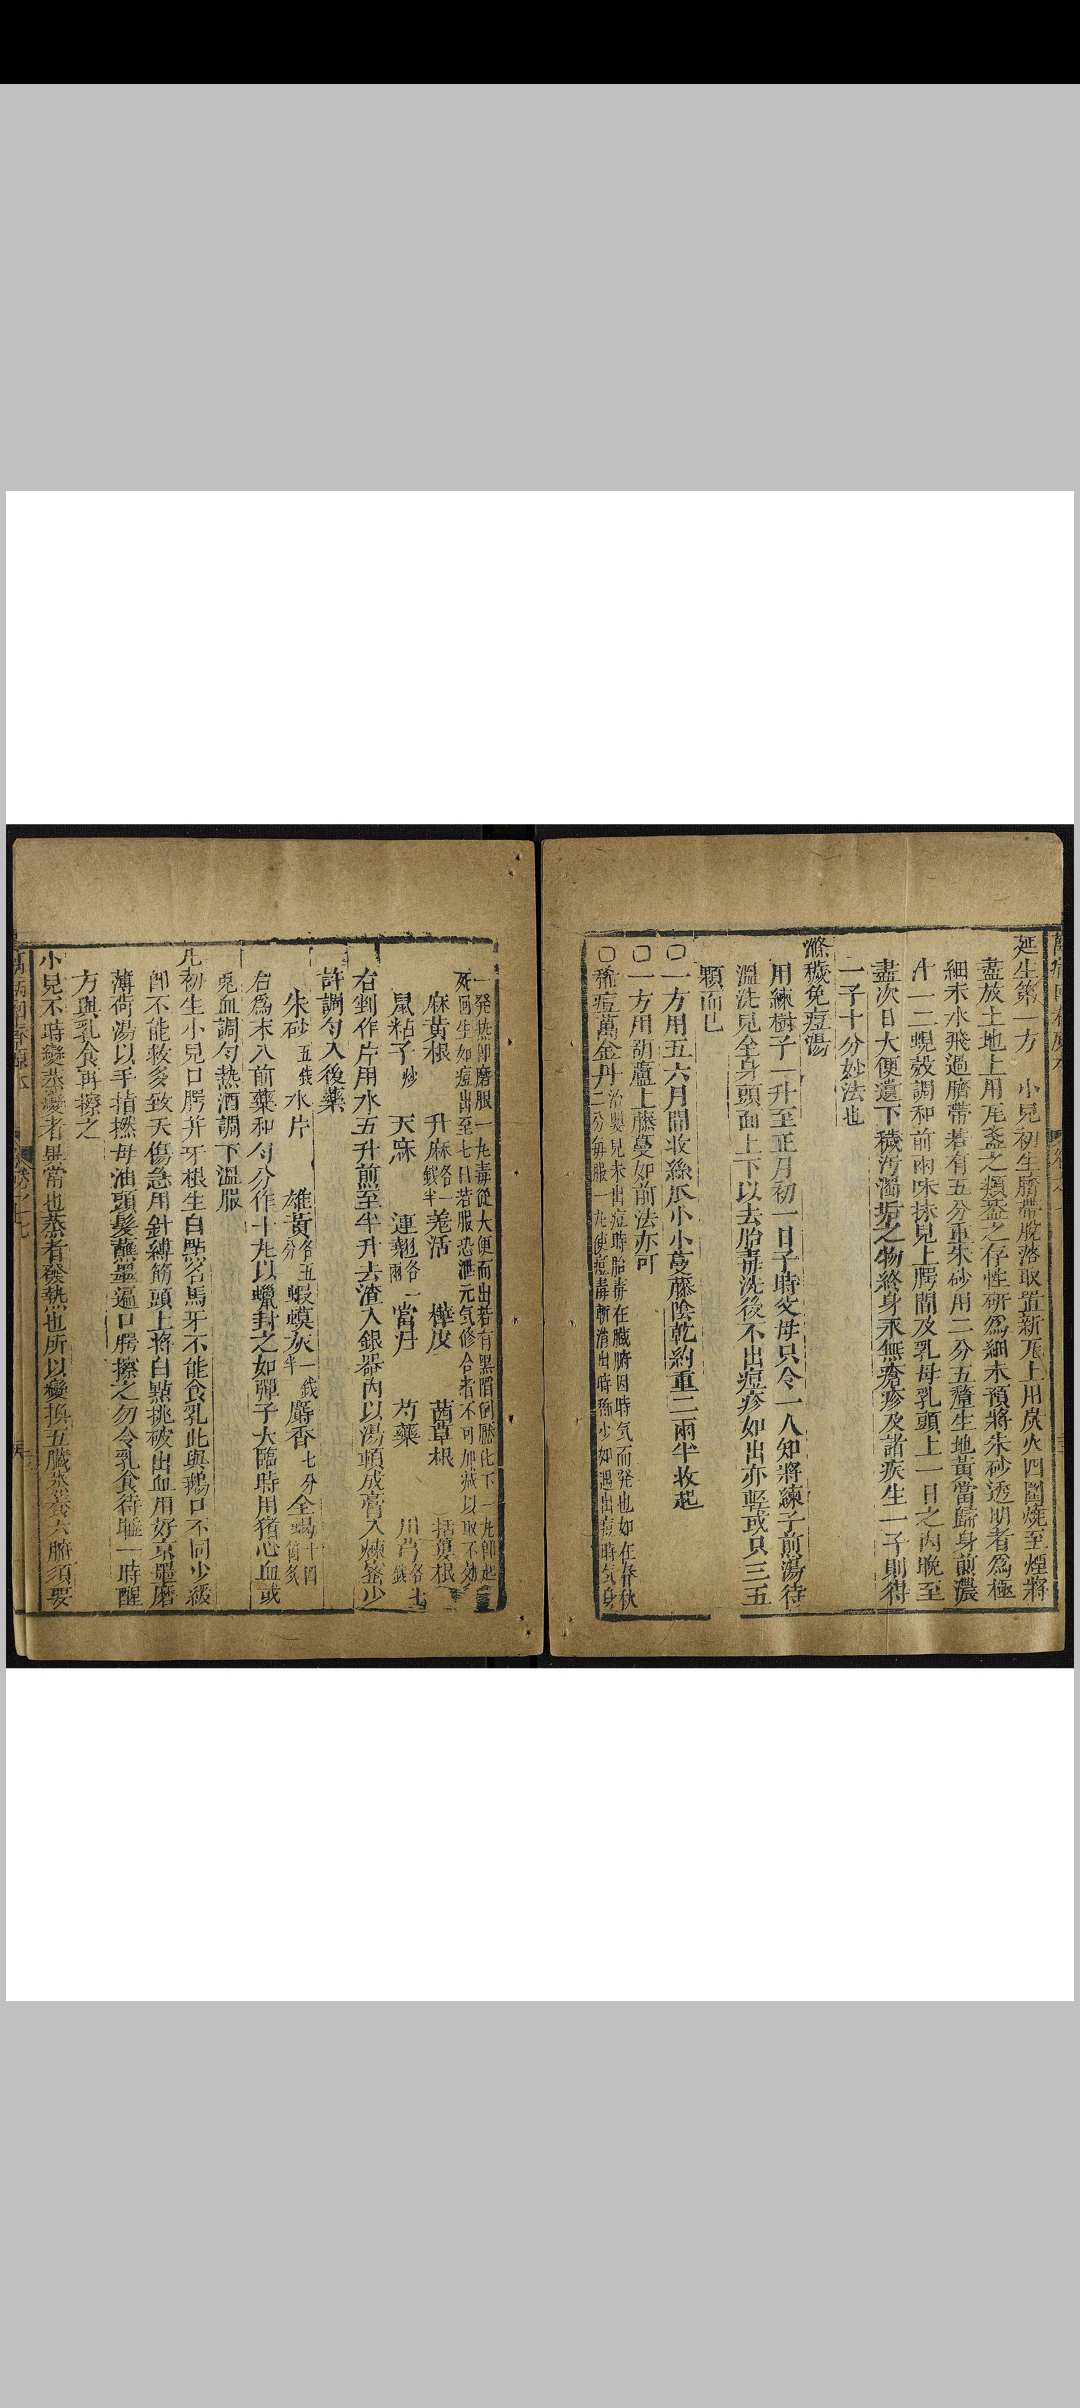 延生第一方　小兒初生臍帶脫落取置新瓦上用炭火四圍燒至煙將
盡放土地上用瓦盞之類盖之存性研為細末預將朱砂透明者為極
細末水飛過臍帶若有五分重朱砂用二分五釐生地黃當歸身煎濃
汁一二蜆殼調和前兩味抹兒上腭間及乳母乳頭上一日之內晚至
盡次日大便遺下穢汚濁垢之物終身永無瘡疹及諸疾生一子則得
一子十分妙法也
滌穢免痘湯
用練樹子一升至正月初一日子時父母只令一人知將練子煎湯待
溫洗兒全身頭面上下以去胎毒洗後不出痘疹如出亦輕或只三五
顆而已
○一方用五六月間收絲瓜小小蔓藤陰乾約重二兩半收起
○一方用葫蘆上藤蔓如前法亦可
○稀痘萬金丹治嬰兒未出痘時胎毒在臟腑因時気而発也如在春秋
二分每服一丸使痘毒漸消出時稀少如遇出痘時気身
一発热即磨服一丸毒從大便而出若有黑陷倒靨化下一丸即起
死囬生如痘出至七日若服恐泄元気修合者不可加减以取不効
麻黃根　升麻各一錢半　羗活　樺皮　茜草根　括蔞根
鼠粘子炒　天麻　連翹各一兩　當归　芍藥　川芎各七錢
右剉作片用水五升煎至半升去渣入銀器內以湯頓成膏入煉蜜少
許調勻入後藥
朱砂五錢　氷片　雄黃各五分　蝦蟆灰一錢半　麝香七分　全蝎十四箇炙
右為末入前藥和勻分作十丸以蠟封之如彈子大臨時用猪心血或
兎血調勻熱酒調下溫服
凡初生小兒口腭并牙根生白點名馬牙不能食乳此與鵝口不同少緩
即不能救多致夭傷急用針縛筋頭上將白點挑破出血用好京墨磨
薄荷湯以手指撚母油頭髮蘸墨遍口腭擦之勿令乳食待睡一時醒
方與乳食再擦之
小兒不時變蒸變者異常也蒸者發熱也所以變換五臟蒸養六腑須要